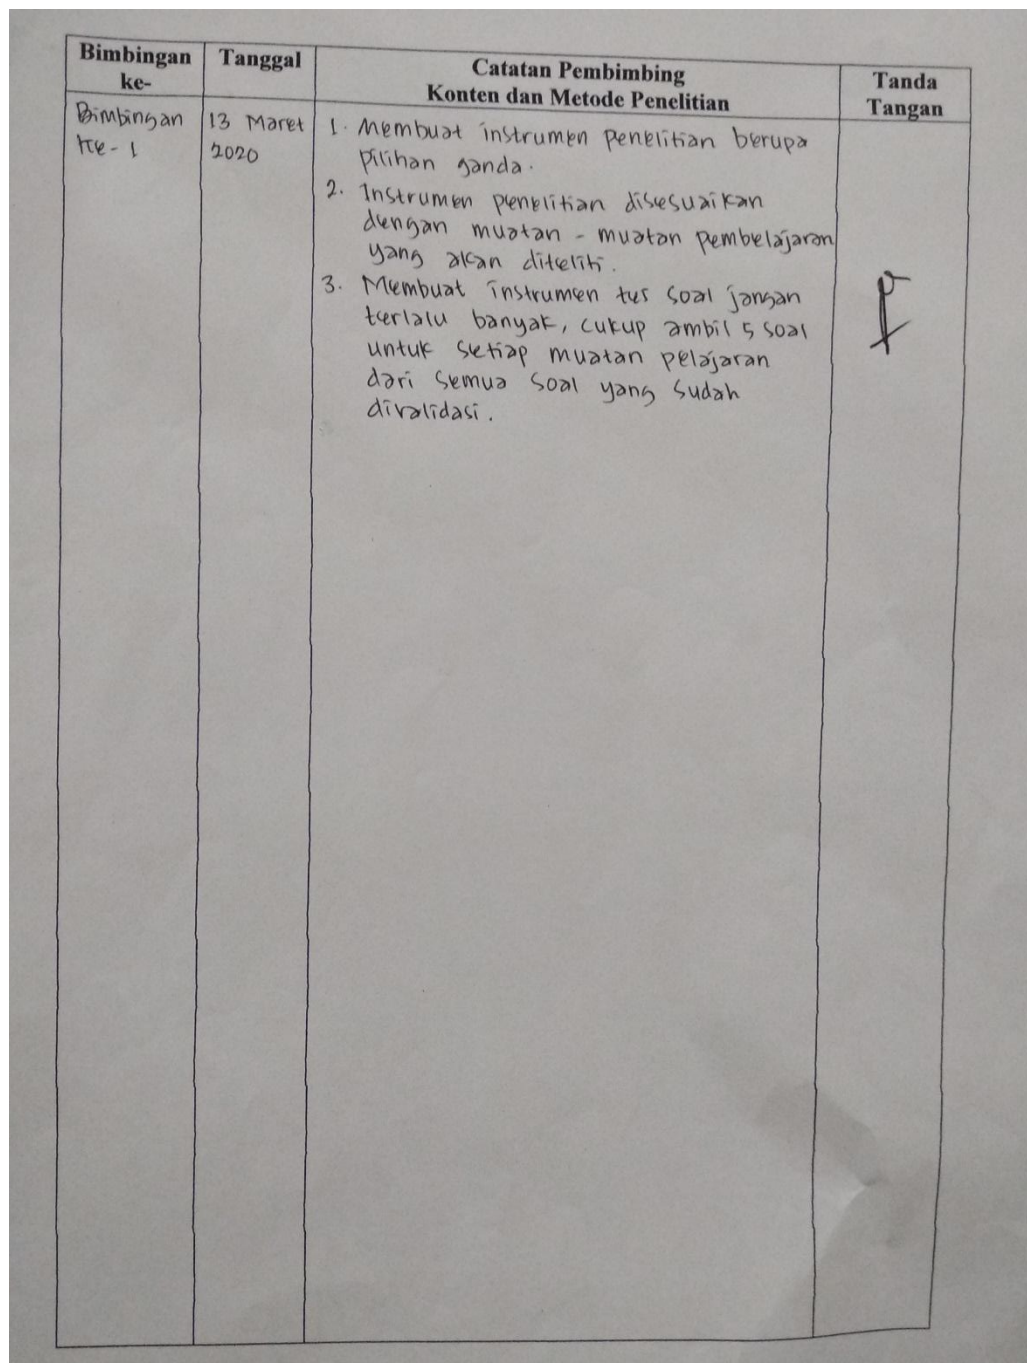 Bimbingan ke-
Tanggal
Catatan Pembimbing
Konten dan Metode Penelitian
Tanda
Tangan
Bimbingan
ke- 1
13 Maret
2020
1. Membuat instrumen penelitian berupa
pilihan ganda.
2. Instrumen penelitian disesuaikan
dengan muatan - muatan pembelajaran
yang akan diteliti.
3. Membuat instrumen tes soal jangan
terlalu banyak, cukup ambil 5 soal
untuk setiap muatan pelajaran
dari semua soal yang sudah
divalidasi.